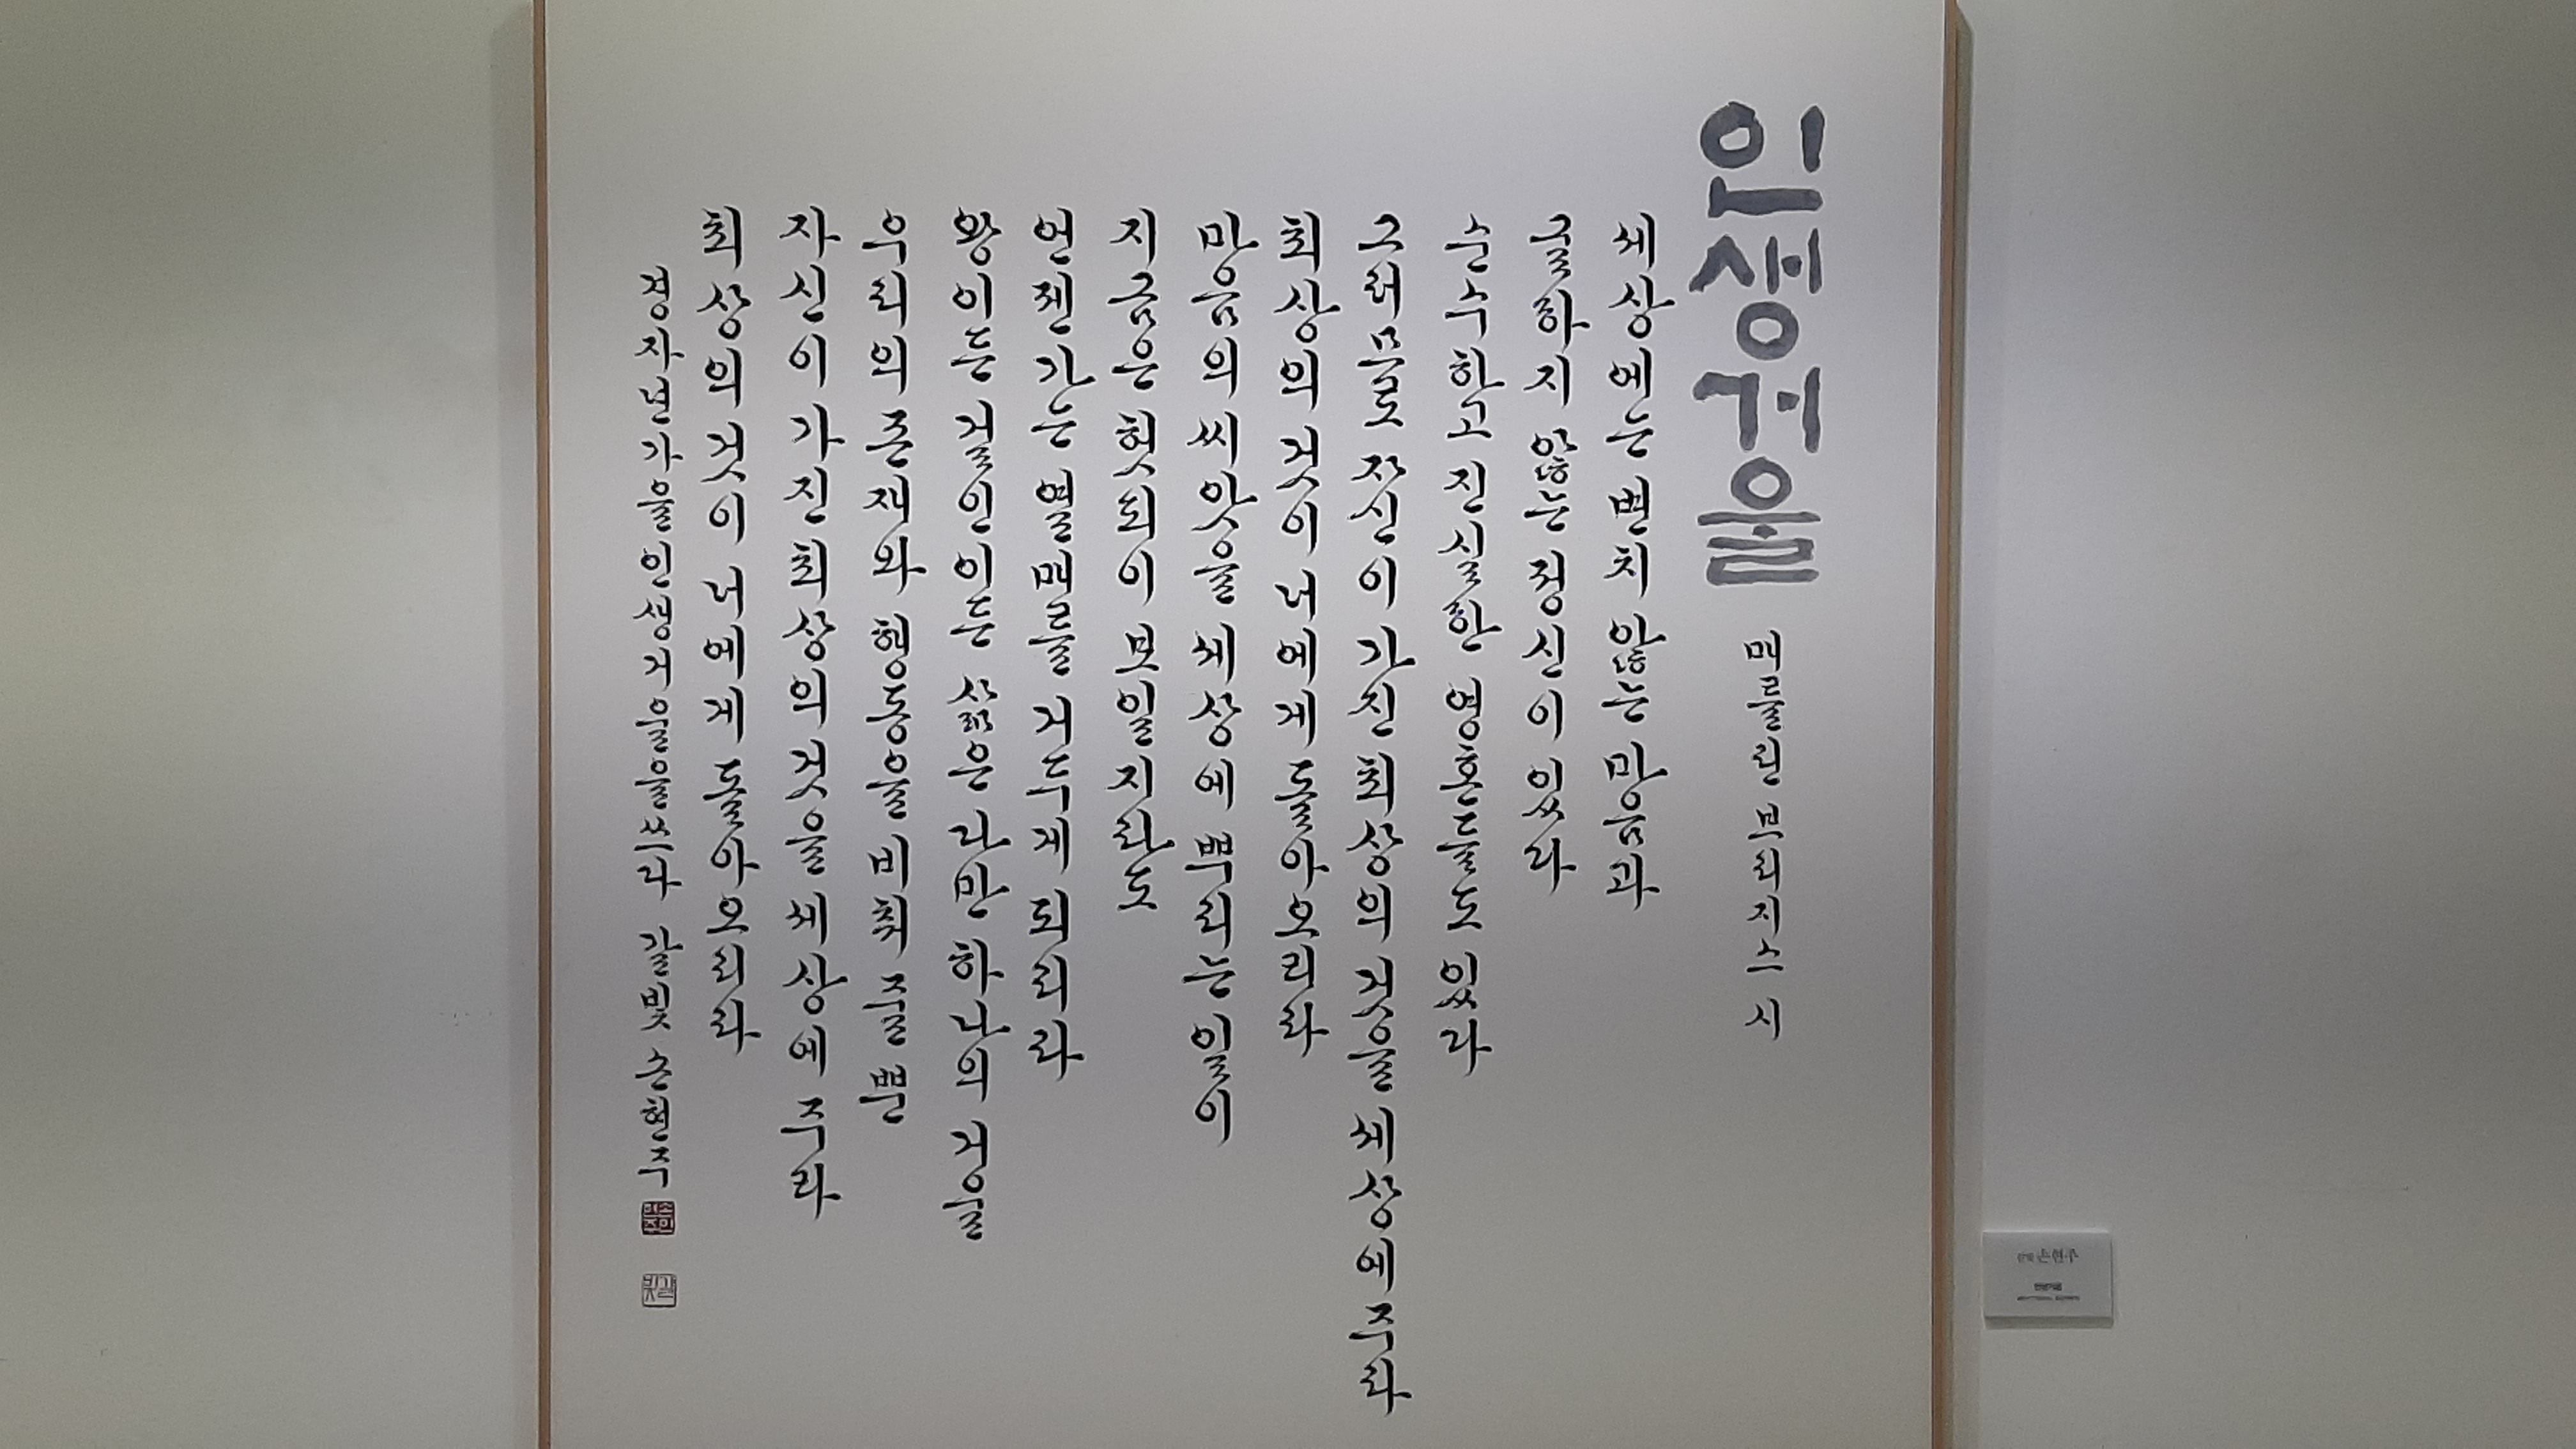 인생거울
매들린 브리지스 시
세상에는 변치 않는 마음과
굴하지 않는 정신이 있다
순수하고 진실한 영혼들도 있다
그러므로 자신이 가진 최상의 것을 세상에 주라
최상의 것이 너에게 돌아오리라
마음의 씨앗을 세상에 뿌리는 일이
지금은 헛되이 보일지라도
언젠가는 열매를 거두게 되리라
왕이든 걸인이든 삶은 다만 하나의 거울
우리의 존재와 행동을 비춰 줄 뿐
자신이 가진 최상의 것을 세상에 주라
최상의 것이 너에게 돌아오리라
경자년가을인생거울을쓰다 갈빛 손현주